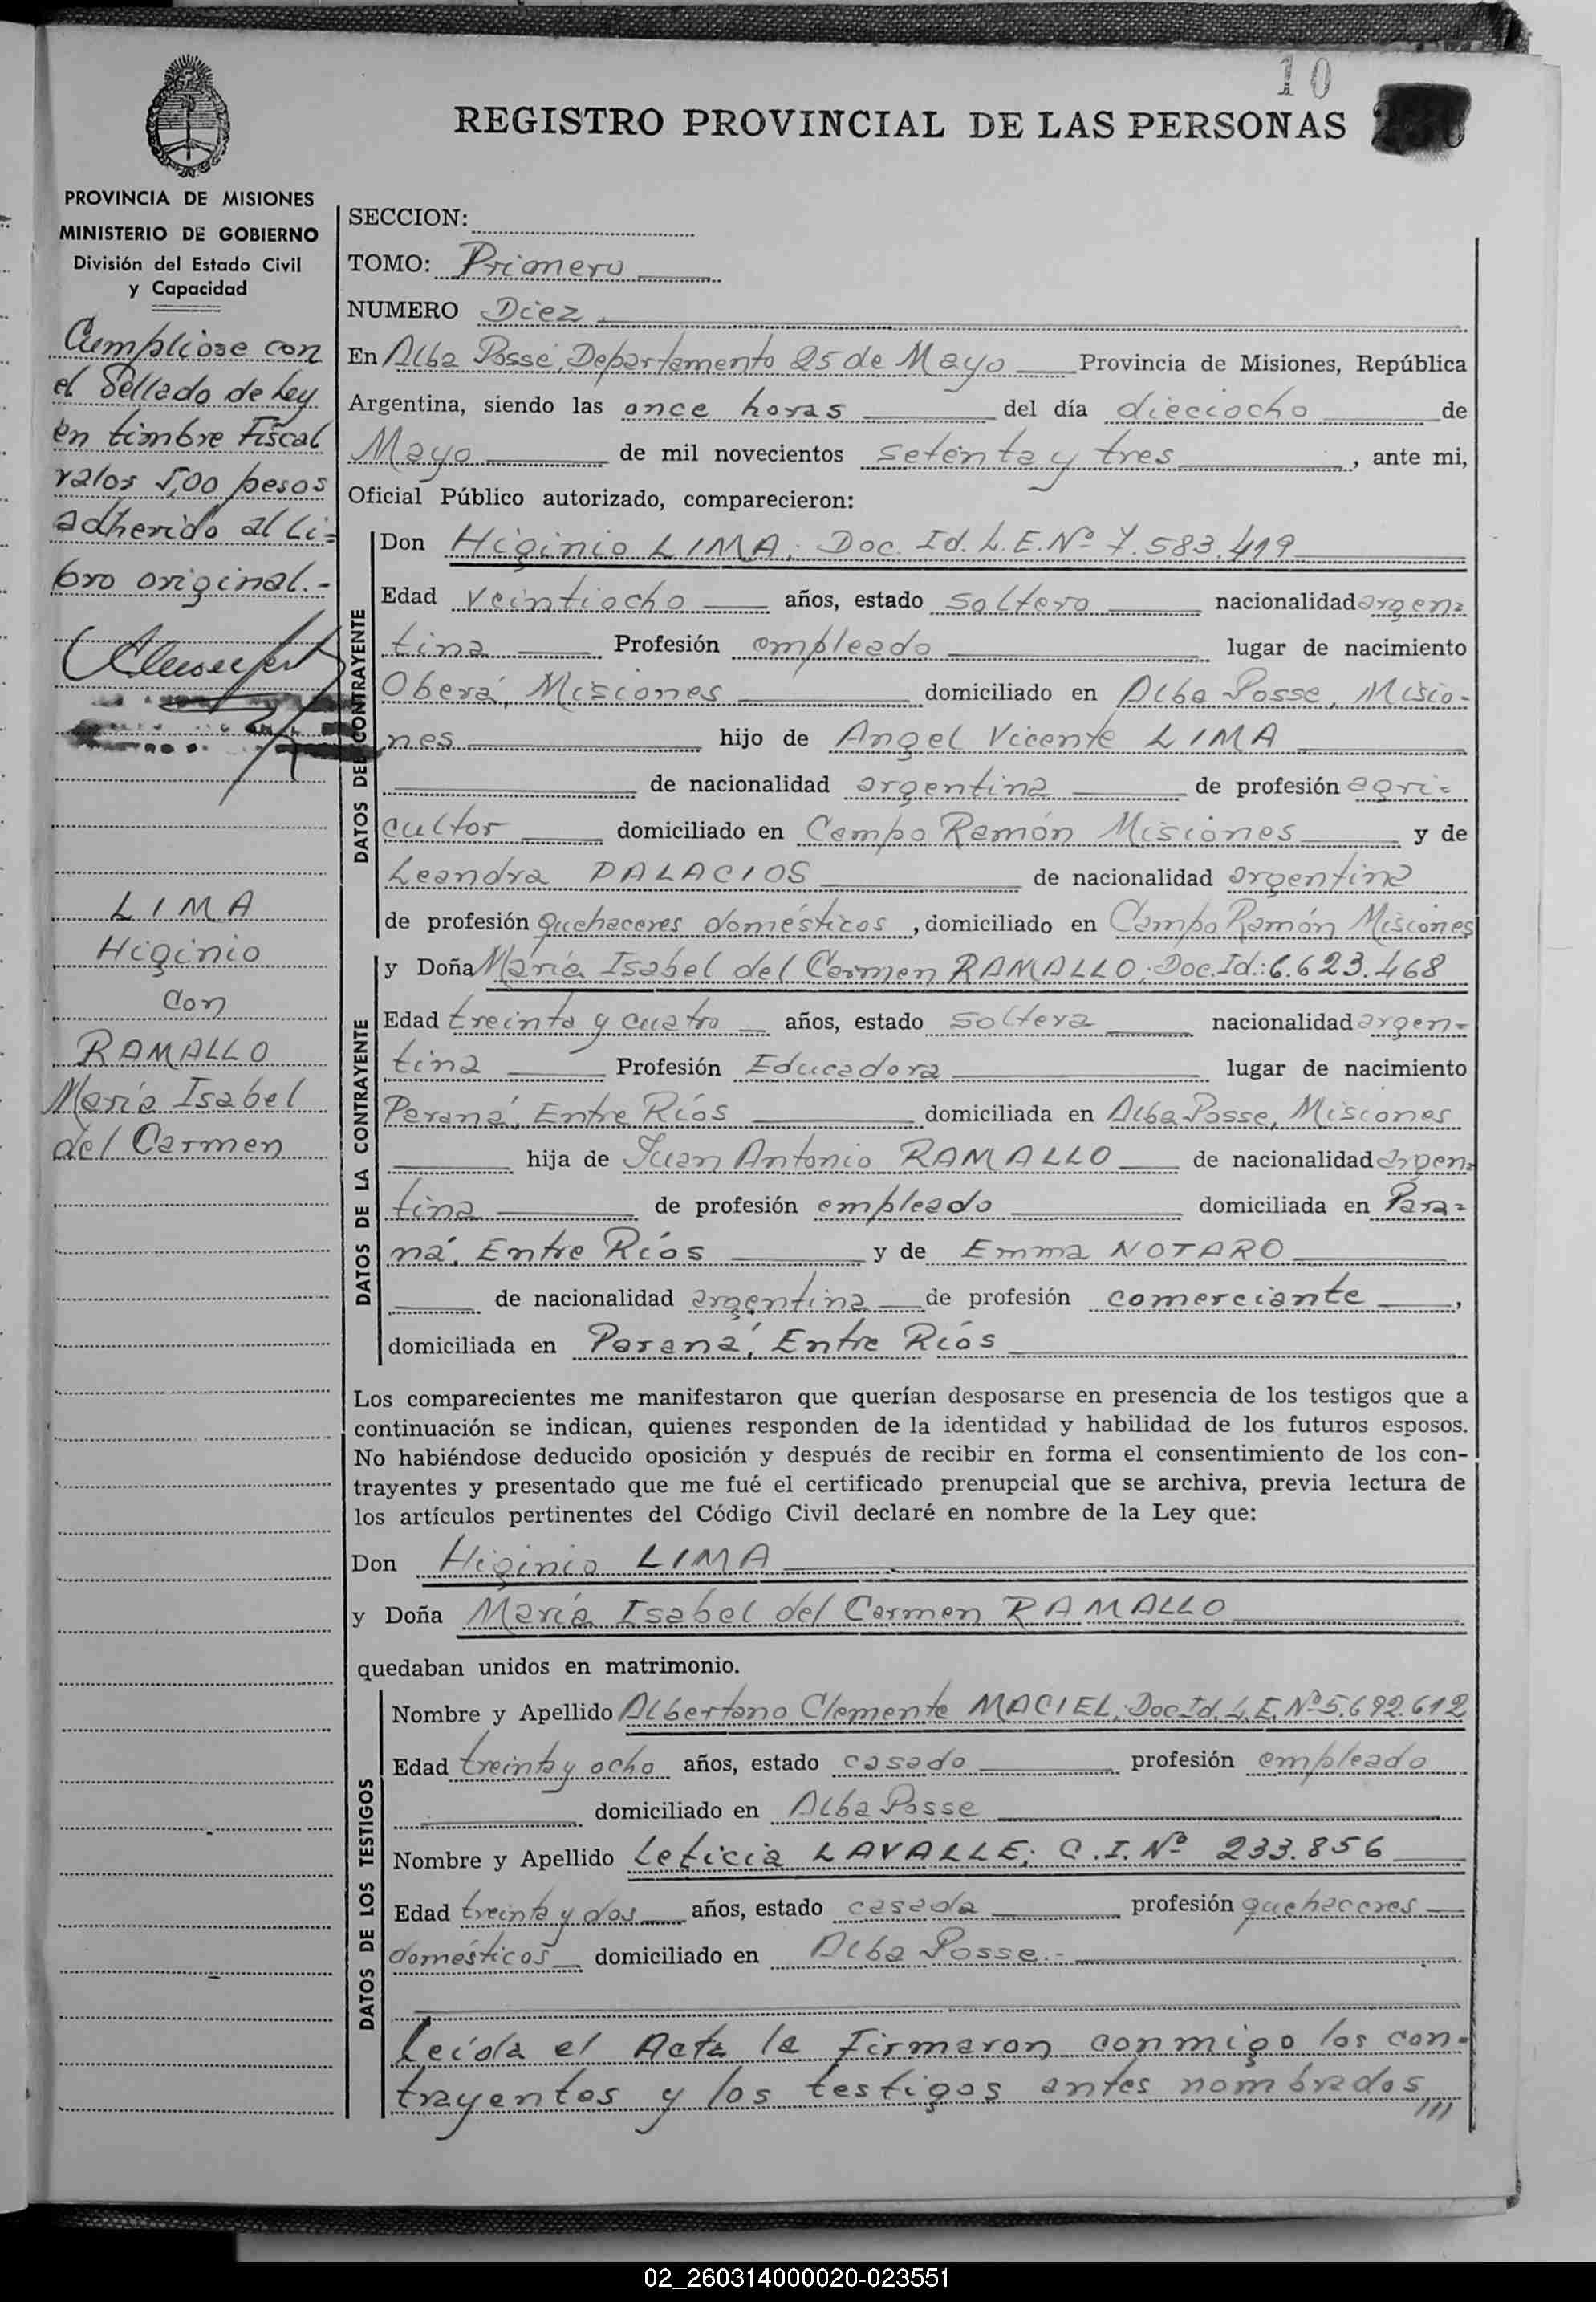 10
REGISTRO PROVINCIAL DE LAS PERSONAS
PROVINCIA DE MISIONES
MINISTERIO DE GOBIERNO
División del Estado Civil
y Capacidad
Cumplióse con
el Sellado de Ley
en timbre Fiscal
valor 5,00 pesos
adherido al Li=
bro original.-
LIMA
Higinio
con
RAMALLO
María Isabel
del Carmen
SECCION:
TOMO: Primero
NUMERO Diez
En Alba Posse, Departamento 25 de Mayo Provincia de Misiones, República
Argentina, siendo las once horas del día dieciocho de
Mayo de mil novecientos setenta y tres, ante mi,
Oficial Público autorizado, comparecieron:
DATOS DEL CONTRAYENTE
Don Higinio LIMA; Doc. Id. L.E.Nº 7.583.419
Edad veintiocho años, estado soltero nacionalidad argen=
tina Profesión empleado lugar de nacimiento
Oberá, Misiones domiciliado en Alba Posse, Misio-
nes hijo de Angel Vicente LIMA
de nacionalidad argentina de profesión agri=
cultor domiciliado en Campo Ramón Misiones y de
Leandra PALACIOS de nacionalidad argentina
de profesión quehaceres domésticos, domiciliado en Campo Ramón Misiones
DATOS DE LA CONTRAYENTE
y Doña María Isabel del Carmen RAMALLO; Doc.Id.:6.623.468
Edad treinta y cuatro años, estado soltera nacionalidad argen=
tina Profesión Educadora lugar de nacimiento
Paraná, Entre Ríos domiciliada en Alba Posse, Misiones
hija de Juan Antonio RAMALLO de nacionalidad argen=
tina de profesión empleado domiciliada en Para=
ná, Entre Ríos y de Emma NOTARO
de nacionalidad argentina de profesión comerciante,
domiciliada en Paraná, Entre Ríos
Los comparecientes me manifestaron que querían desposarse en presencia de los testigos que a
continuación se indican, quienes responden de la identidad y habilidad de los futuros esposos.
No habiéndose deducido oposición y después de recibir en forma el consentimiento de los con-
trayentes y presentado que me fué el certificado prenupcial que se archiva, previa lectura de
los artículos pertinentes del Código Civil declaré en nombre de la Ley que:
Don Higinio LIMA
y Doña María Isabel del Carmen RAMALLO
quedaban unidos en matrimonio.
DATOS DE LOS TESTIGOS
Nombre y Apellido Albertano Clemente MACIEL; Doc.Id. L.E.Nº5.692.612
Edad treinta y ocho años, estado casado profesión empleado
domiciliado en Alba Posse
Nombre y Apellido Leticia LAVALLE; C.I.Nº 233.856
Edad treinta y dos años, estado casada profesión quehaceres
domésticos domiciliado en Alba Posse.-
Leída el Acta la Firmaron conmigo los con-
trayentes y los testigos antes nombrados
02_260314000020-023551